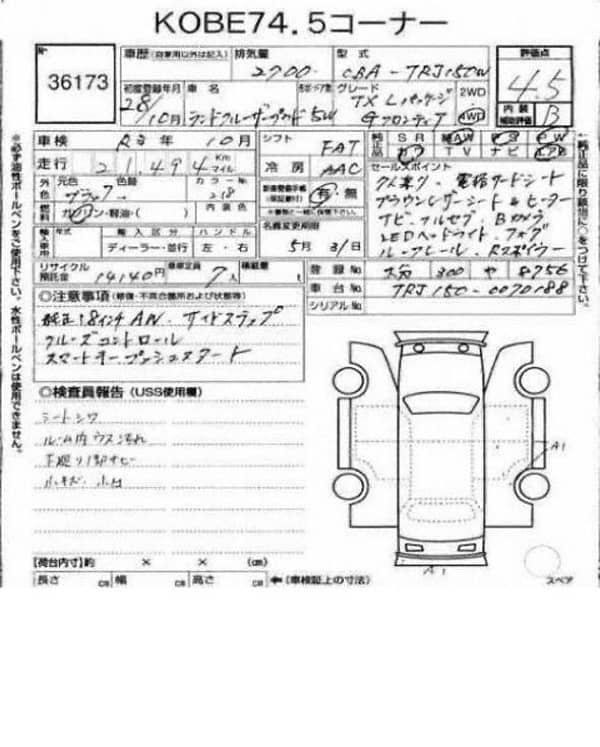 KOBE74.5コーナー
36173
車歴 (自家用以外は記入) 排気量 型式
2700 CBA-TRJ150W
評価点
4.5
内装補助評価 B
初度登録年月 車名 グレード
28/10月 ランドクルーザープラド 5W TX Lパッケージ
Gフロンティア
2WD
4WD
車検 年 10月
シフト FAT
走行 21,494 Km マイル
冷房 AAC
純正品 SR AW PS PW
TV ナビ
外色 元色 色替 カラーNo.
ブラック 218
燃料 ガソリン・軽油・( ) 内装色
有・無
セールスポイント
ナビ・フルセグ Bカメラ
LEDヘッドライト・フォグ
ルーフレール・Rスポイラー
輸入車用 年式 輸入区分 ハンドル
ディーラー・並行 左・右
名義変更期限
5月31日
リサイクル預託金 14140円 乗車定員 7人 積載量 t
登録No. 大分 300 や 8756
車台No. TRJ150-0070188
シリアルNo.
◎注意事項 (修復・不具合箇所および状態等)
純正18インチAW. サイドステップ
クルーズコントロール
スマートキー・プッシュスタート
◎検査員報告 (USS使用欄)
シートシワ
ルーム内ウスヨゴレ
下廻り1部サビ
小キズ. 小凹
A1
A1
【荷台内寸】約 × × (cm)
長さ cm 幅 cm 高さ cm ←(車検証上の寸法)
スペア
※必ず油性ボールペンをご使用下さい。水性ボールペンは使用できません。
←純正品に限り該当に○をつけて下さい。